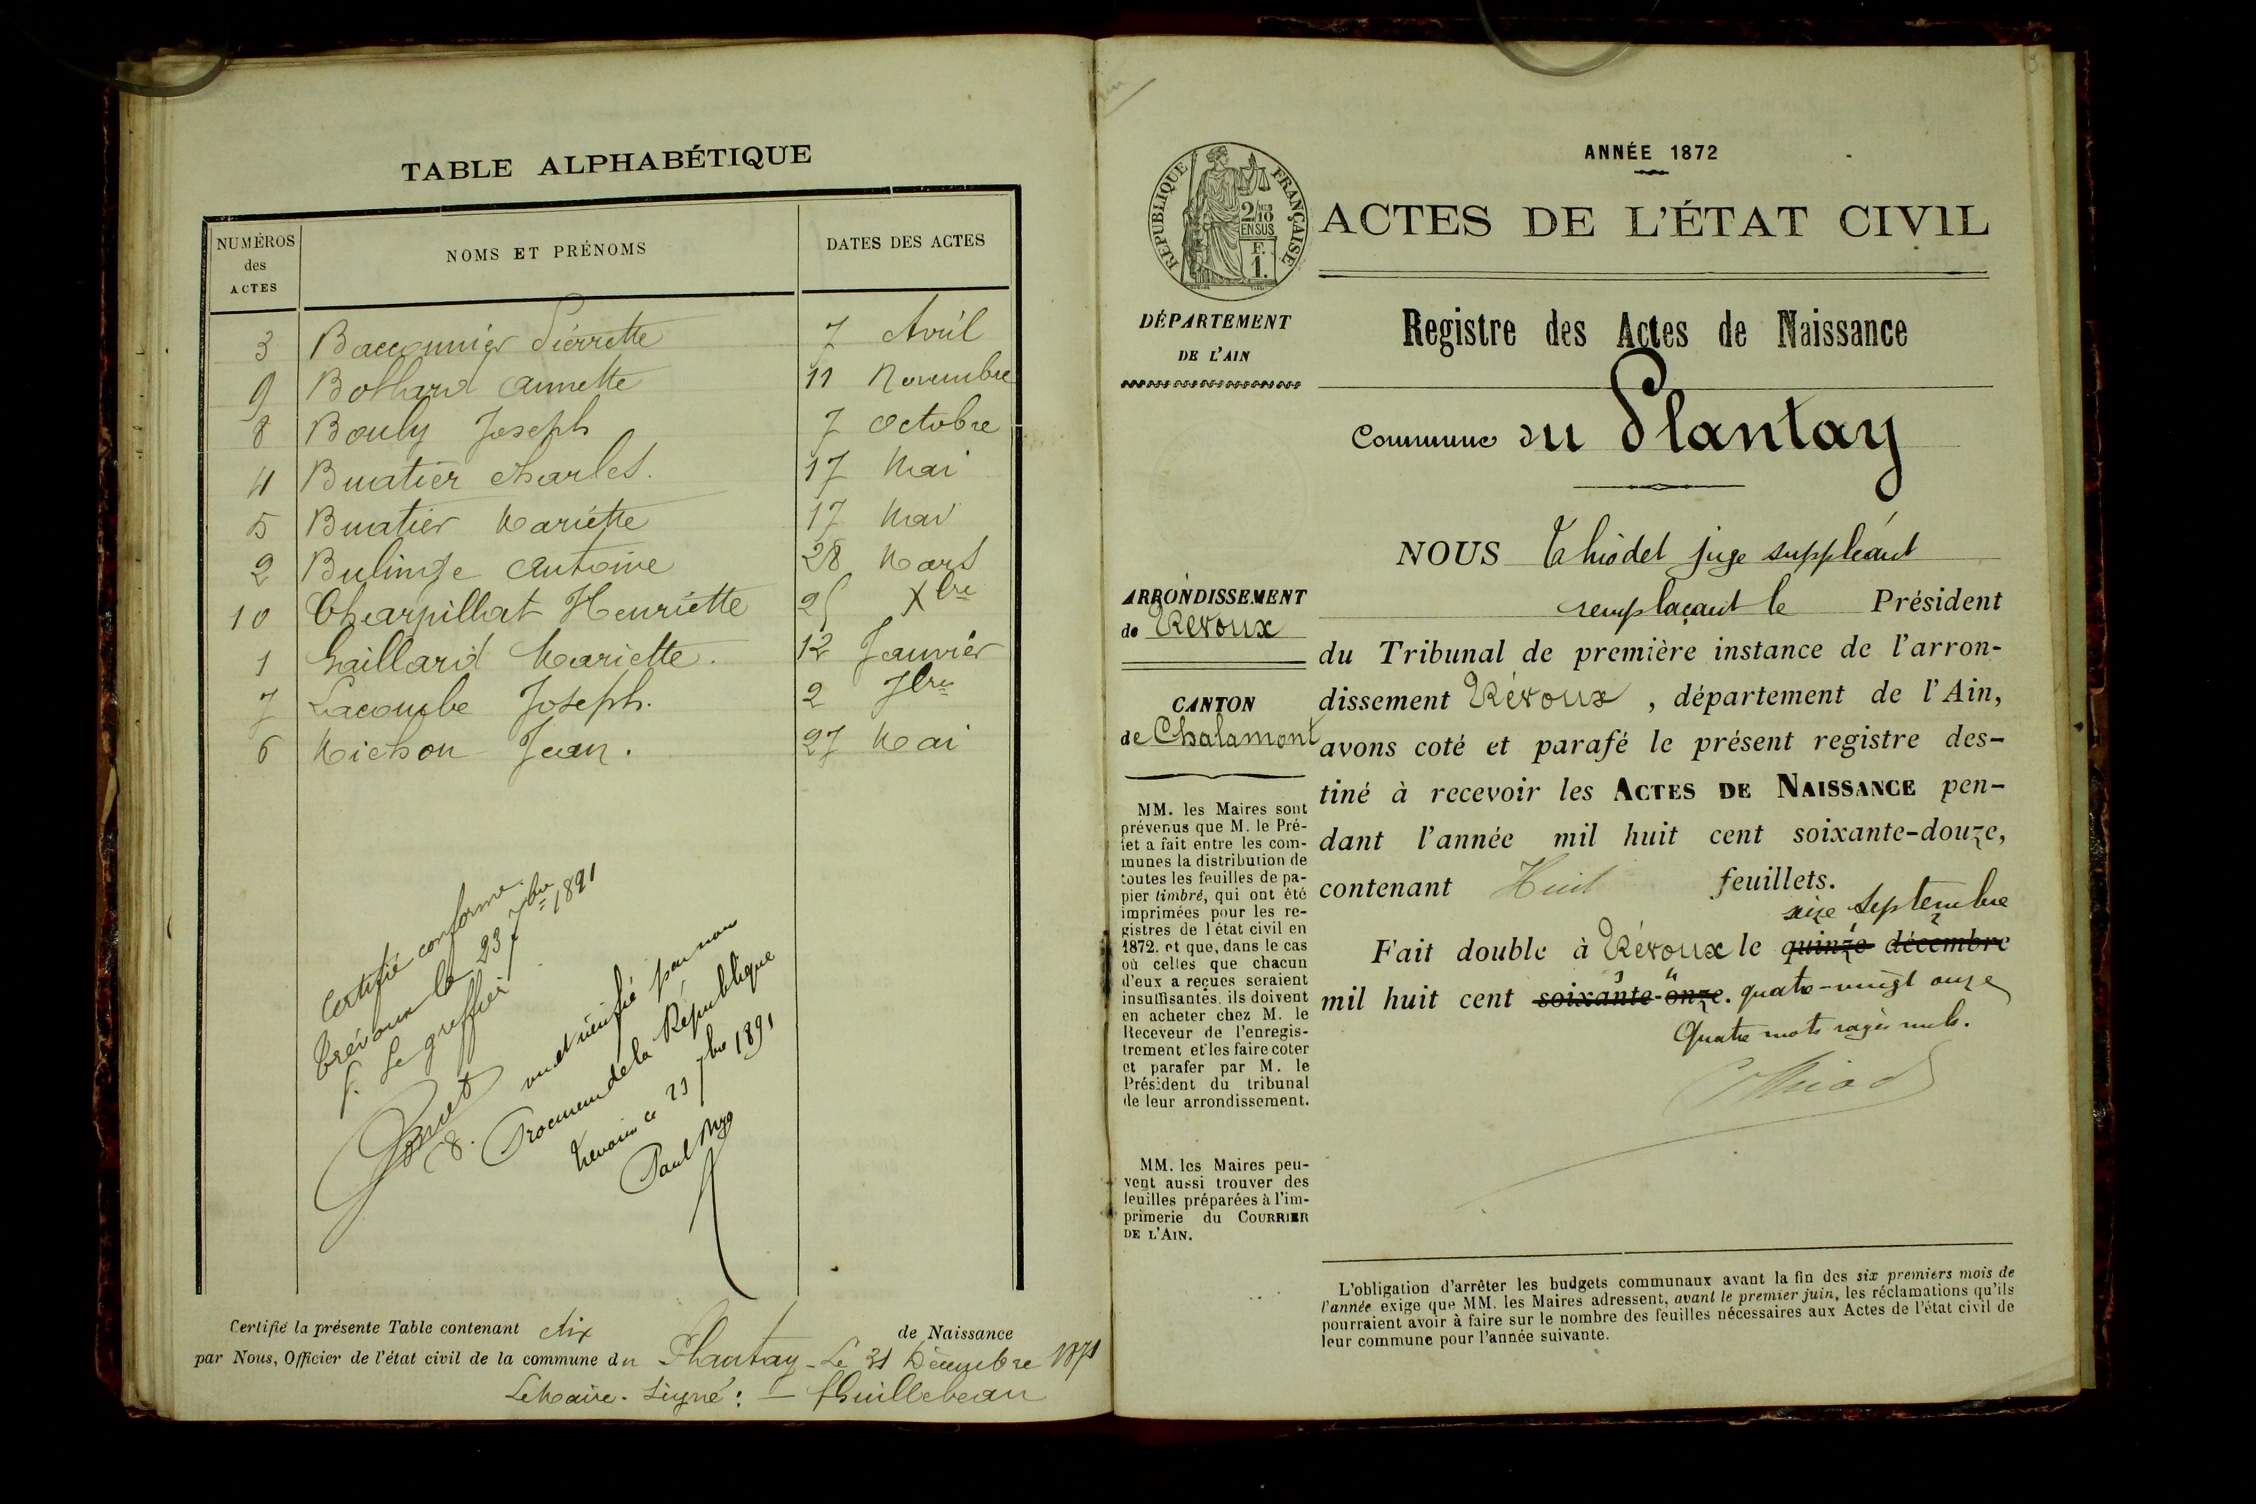 TABLE ALPHABÉTIQUE
NUMÉROS des ACTES NOMS ET PRÉNOMS DATES DES ACTES
3 Bacconnier Pierrette 7 Avril
9 Bothard Annette 11 Novembre
8 Bouly Joseph 7 Octobre
4 Buatier Charles. 17 Mai
5 Buatier Mariette 17 Mai
2 Bulinge Antoine 28 Mars
10 Charpillat Henriette 25 Xbre
1 Gaillard Mariette. 12 Janvier
7 Lacombe Joseph. 2 7bre
6 Michon Jean. 27 Mai
Certifié conforme.
Trévoux le 23 7bre 1891
Le greffier
vu et vérifié par nous
Procureur de la République
Trévoux ce 23 7bre 1891
Paul
Certifié la présente Table contenant dix de Naissance
par Nous, Officier de l'état civil de la commune du Plantay - Le 31 Décembre 1871
Le Maire. Signé: - Guillebeau
ANNÉE 1872
RÉPUBLIQUE FRANÇAISE
2/10 EN SUS
F. 1.
ACTES DE L'ÉTAT CIVIL
DÉPARTEMENT
DE L'AIN
Registre des Actes de Naissance
Commune du Plantay
NOUS Thiodet juge suppléant
remplaçant le Président
du Tribunal de première instance de l'arron-
dissement Trévoux, département de l'Ain,
avons coté et parafé le présent registre des-
tiné à recevoir les ACTES DE NAISSANCE pen-
dant l'année mil huit cent soixante-douze,
contenant Huit feuillets.
seize septembre
Fait double à Trévoux le quinze décembre
mil huit cent soixante-onze. quatre-vingt onze
Quatre mots rayés nuls.
ARRONDISSEMENT
de Trévoux
CANTON
de Chalamont
MM. les Maires sont
prévenus que M. le Pré-
fet a fait entre les com-
munes la distribution de
toutes les feuilles de pa-
pier timbré, qui ont été
imprimées pour les re-
gistres de l'état civil en
1872. et que, dans le cas
où celles que chacun
d'eux a reçues seraient
insuffisantes, ils doivent
en acheter chez M. le
Receveur de l'enregis-
trement et les faire coter
et parafer par M. le
Président du tribunal
de leur arrondissement.
MM. les Maires peu-
vent aussi trouver des
feuilles préparées à l'im-
primerie du COURRIER
DE L'AIN.
L'obligation d'arrêter les budgets communaux avant la fin des six premiers mois de
l'année exige que MM. les Maires adressent, avant le premier juin, les réclamations qu'ils
pourraient avoir à faire sur le nombre des feuilles nécessaires aux Actes de l'état civil de
leur commune pour l'année suivante.